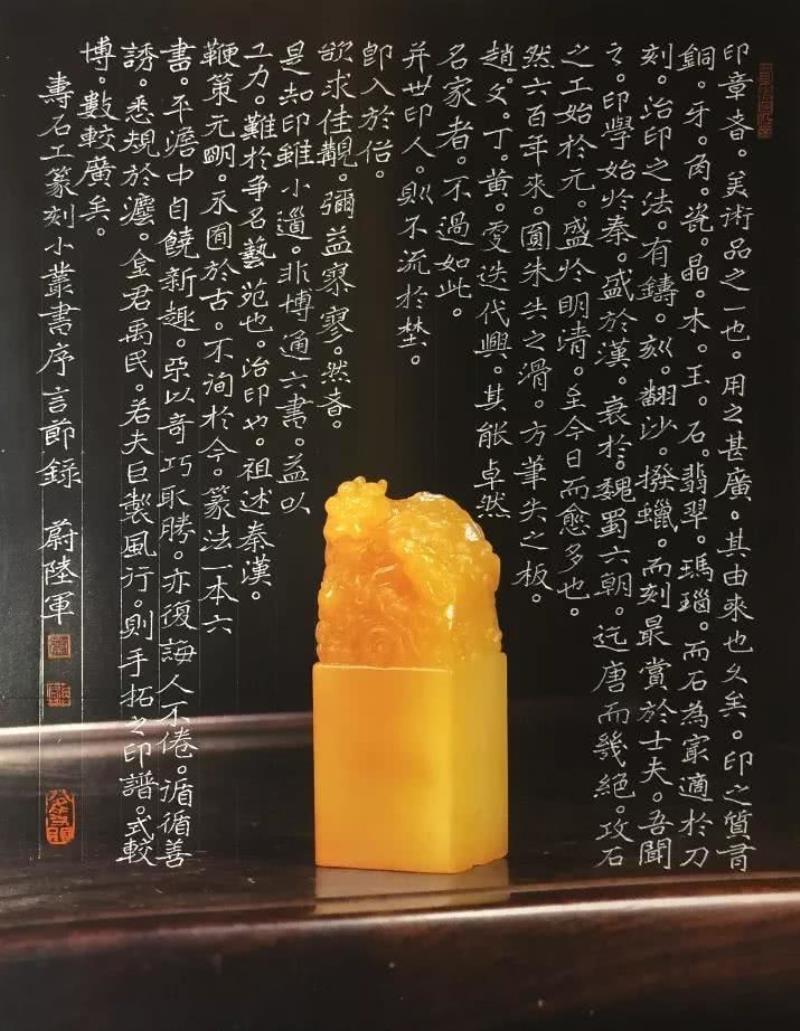 印章者。美術品之一也。用之甚廣。其由來也久矣。印之質有
銅。牙。角。瓷。晶。木。玉。石。翡翠。瑪瑙。而石為最適於刀
刻。治印之法。有鑄。刻。翻沙。撥蠟。而刻最賞於士夫。吾聞
之。印學始於秦。盛於漢。衰於魏蜀六朝。迄唐而幾絕。攻石
之工始於元。盛於明清。至今日而愈多也。
然六百年來。圓朱失之滑。方筆失之板。
趙。文。丁。黃。雯迭代興。其能卓然
名家者。不過如此。
并世印人。則不流於埜。
即入於俗。
欲求佳觀。彌益寡寥。然者。
是知印雖小道。非博通六書。益以
工力。難於爭名藝苑也。治印也。祖述秦漢。
鞭策元明。不囿於古。不洵於今。篆法一本六
書。平澹中自饒新趣。亞以奇巧取勝。亦復誨人不倦。循循善
誘。悉規於灋。金君禹民。若夫巨製風行。則手拓之印譜。式較
博。數較廣矣。
壽石工篆刻小叢書序言節錄 蔚陸軍